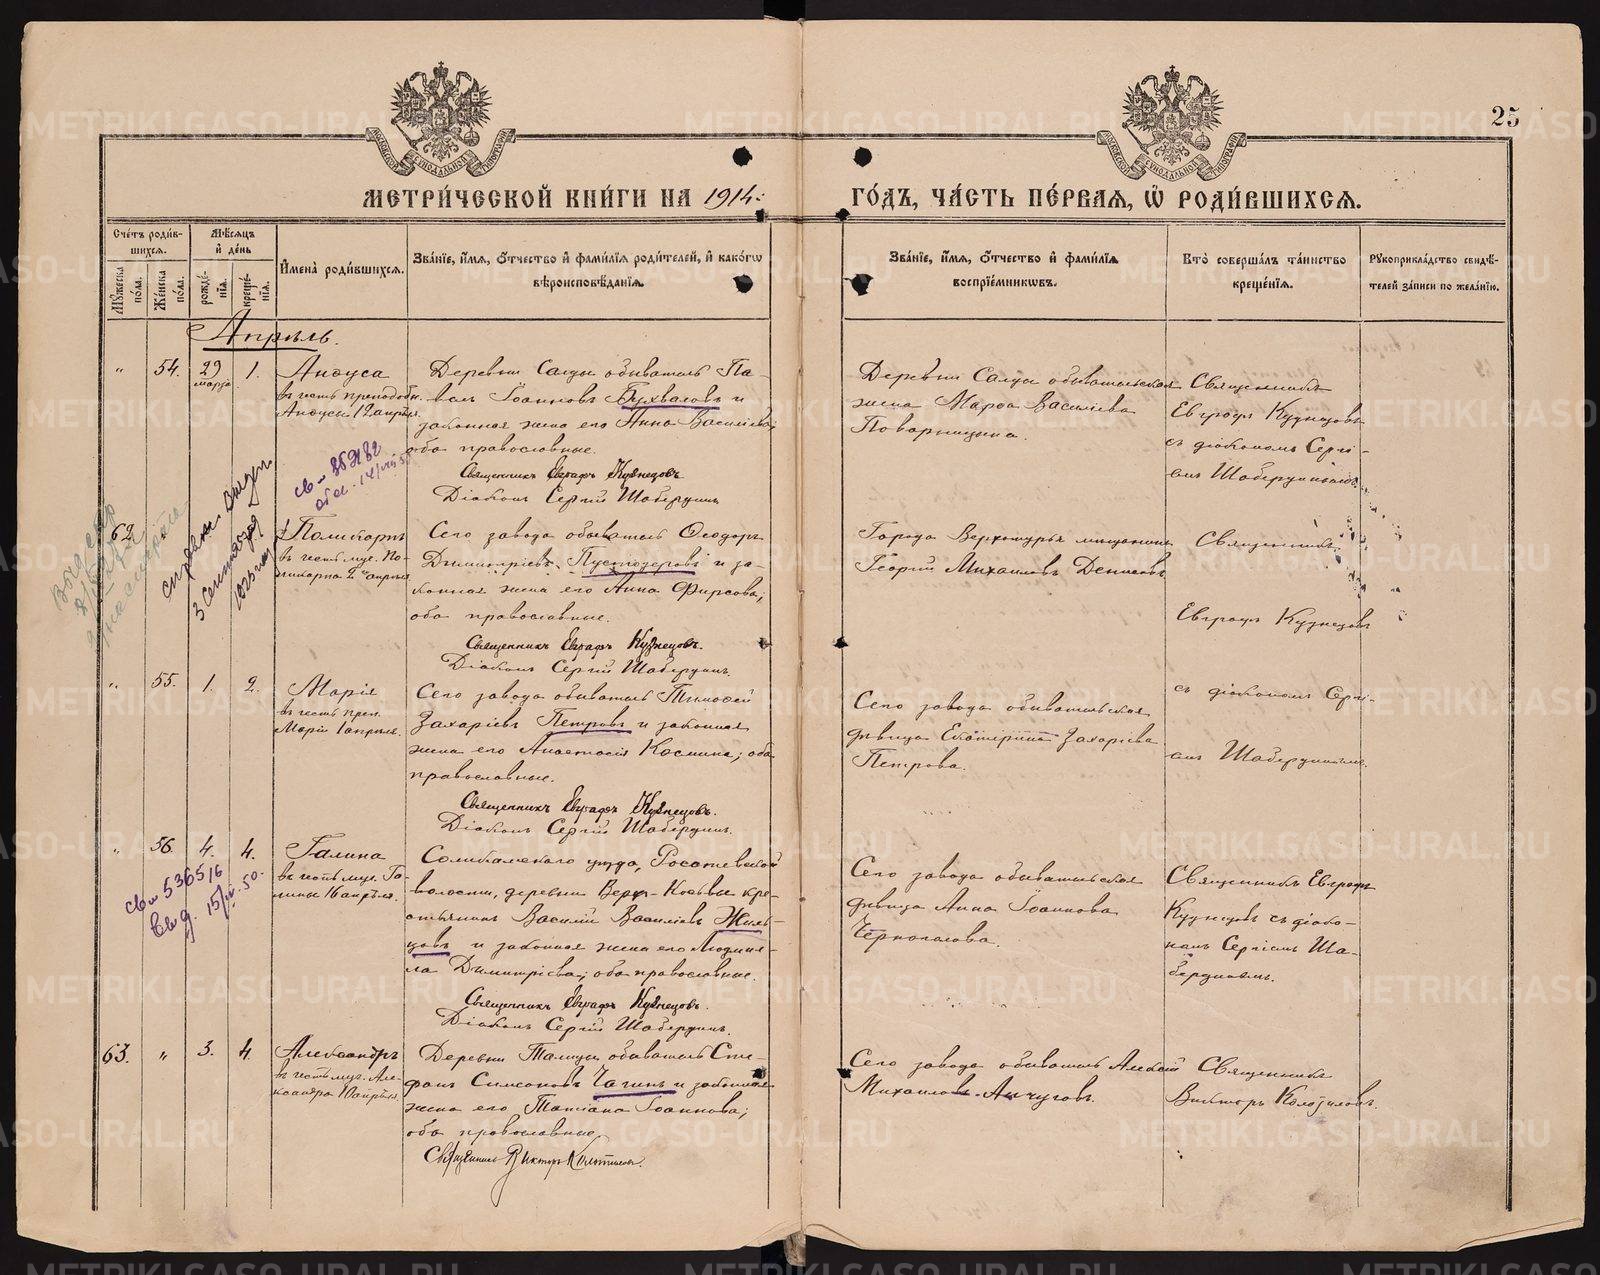 25
МЕТРИ́ЧЕСКОЙ КНИ́ГИ НА 1914: ГО́ДЪ, ЧА́СТЬ ПЕ́РВАЯ, Ѡ҆ РОДИ́ВШИХСЯ.
Сче́тъ роди́в-
шихся.
Мꙋжеска по́ла.
Же́нска по́ла.
Мѣ́сяцъ
и҆ де́нь
рожде́-
нїѧ.
креще́-
нїѧ.
И҆мена̀ роди́вшихся.
Зва́нїе, и҆́мя, ѻ҆́тчество и҆ фами́лїя роди́телей, и҆ како́гѡ
вѣроисповѣ́данїя.
Зва́нїе, и҆́мя, ѻ҆́тчество и҆ фами́лїя
воспрїе́мникѡвъ.
Кто̀ соверша́лъ та́инство
креще́нїя.
Рꙋкоприкла́дство свидѣ́-
телей за́писи по жела́нїю.
Апрѣль.
„ 54. 29 марта 1.
Анѳуса
въ честь преподобн.
Анѳусы 12 апрѣля.
Деревни Салды обыватель Па-
велъ Іоанновъ Бухваловъ и
законная жена его Анна Василіева;
оба православные.
Священникъ Евграфъ Кузнецовъ
Діаконъ Сергій Шабердинъ
Деревни Салды обывательская
жена Марѳа Василіева
Поварницына.
Священникъ
Евграфъ Кузнецовъ
съ діакономъ Сергі-
емъ Шабердинымъ.
62.
3 Сентября
Поликарпъ
въ честь муч. По-
ликарпа 2 апрѣля
Сего завода обыватель Ѳеодоръ
Димитріевъ Пустозеровъ и за-
конная жена его Анна Фирсова;
оба православные.
Священникъ Евграфъ Кузнецовъ.
Діаконъ Сергій Шабердинъ.
Города Верхотурья мѣщанинъ
Георгій Михаиловъ Денисовъ
Священникъ
Евграфъ Кузнецовъ
съ діакономъ Сергі-
емъ Шабердинымъ.
„ 55. 1. 2.
Марія
въ честь преп.
Маріи 1 апрѣля.
Сего завода обыватель Тимоѳей
Захаріевъ Петровъ и законная
жена его Анастасія Космина; оба
православные.
Священникъ Евграфъ Кузнецовъ.
Діаконъ Сергій Шабердинъ.
Сего завода обывательская
дѣвица Екатерина Захаріева
Петрова.
„ 56. 4. 4.
св 536516
15/IV.50.
Галина
въ честь муч. Га-
лины 16 апрѣля.
Соликамскаго уѣзда,
волости, деревни Верх-Косьвы кре-
стьянинъ Василій Василіевъ Жиль-
цовъ и законная жена его Людми-
ла Димитріева; оба православные.
Священникъ Евграфъ Кузнецовъ.
Діаконъ Сергій Шабердинъ.
Сего завода обывательская
дѣвица Анна Іоаннова
Черноголова.
Священникъ Евграфъ
Кузнецовъ съ діако-
номъ Сергіемъ Ша-
бердинымъ.
63. „ 3. 4.
Александръ
въ честь муч. Але-
ксандра 10 апрѣля.
Деревни Талицы обыватель Сте-
фанъ Симеоновъ Чагинъ и законная
жена его Татіана Іоаннова;
оба православные.
Священникъ Викторъ
Сего завода обыватель Алексій
Михаиловъ Анчуговъ.
Священникъ
Викторъ
METRIKI.GASO-URAL.RU